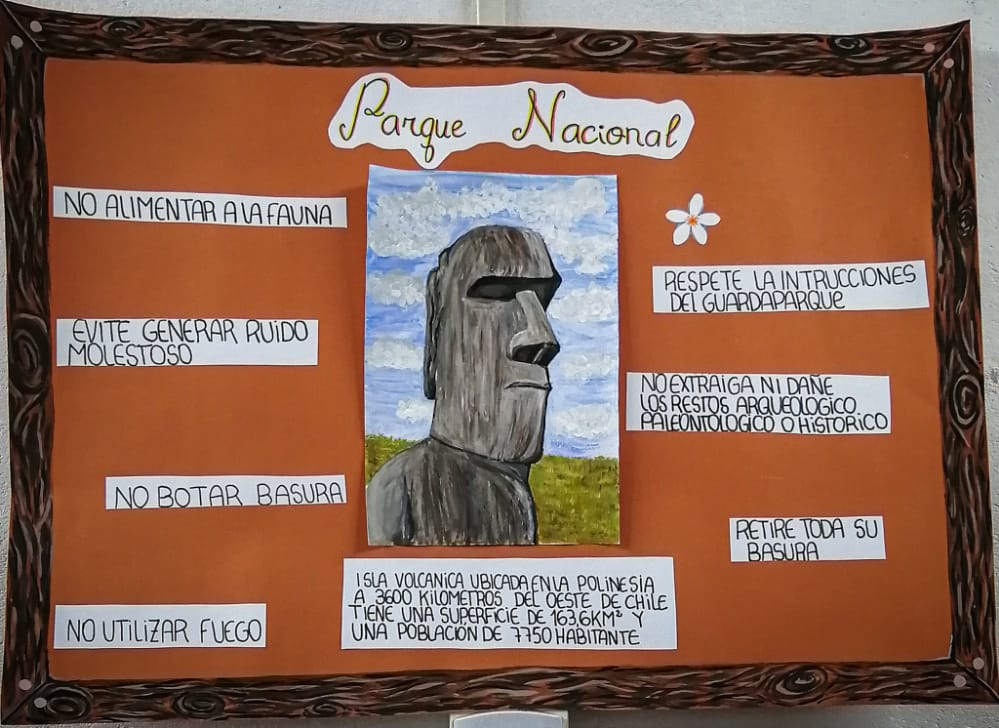 Parque Nacional
NO ALIMENTAR A LA FAUNA
EVITE GENERAR RUIDO
MOLESTOSO
NO BOTAR BASURA
NO UTILIZAR FUEGO
RESPETE LA INTRUCCIONES
DEL GUARDAPARQUE
NO EXTRAIGA NI DAÑE
LOS RESTOS ARQUEOLOGICO
PALEONTOLOGICO O HISTORICO
RETIRE TODA SU
BASURA
ISLA VOLCANICA UBICADA EN LA POLINESIA
A 3600 KILOMETROS DEL OESTE DE CHILE
TIENE UNA SUPERFICIE DE 163,6KM² Y
UNA POBLACIÓN DE 7750 HABITANTE